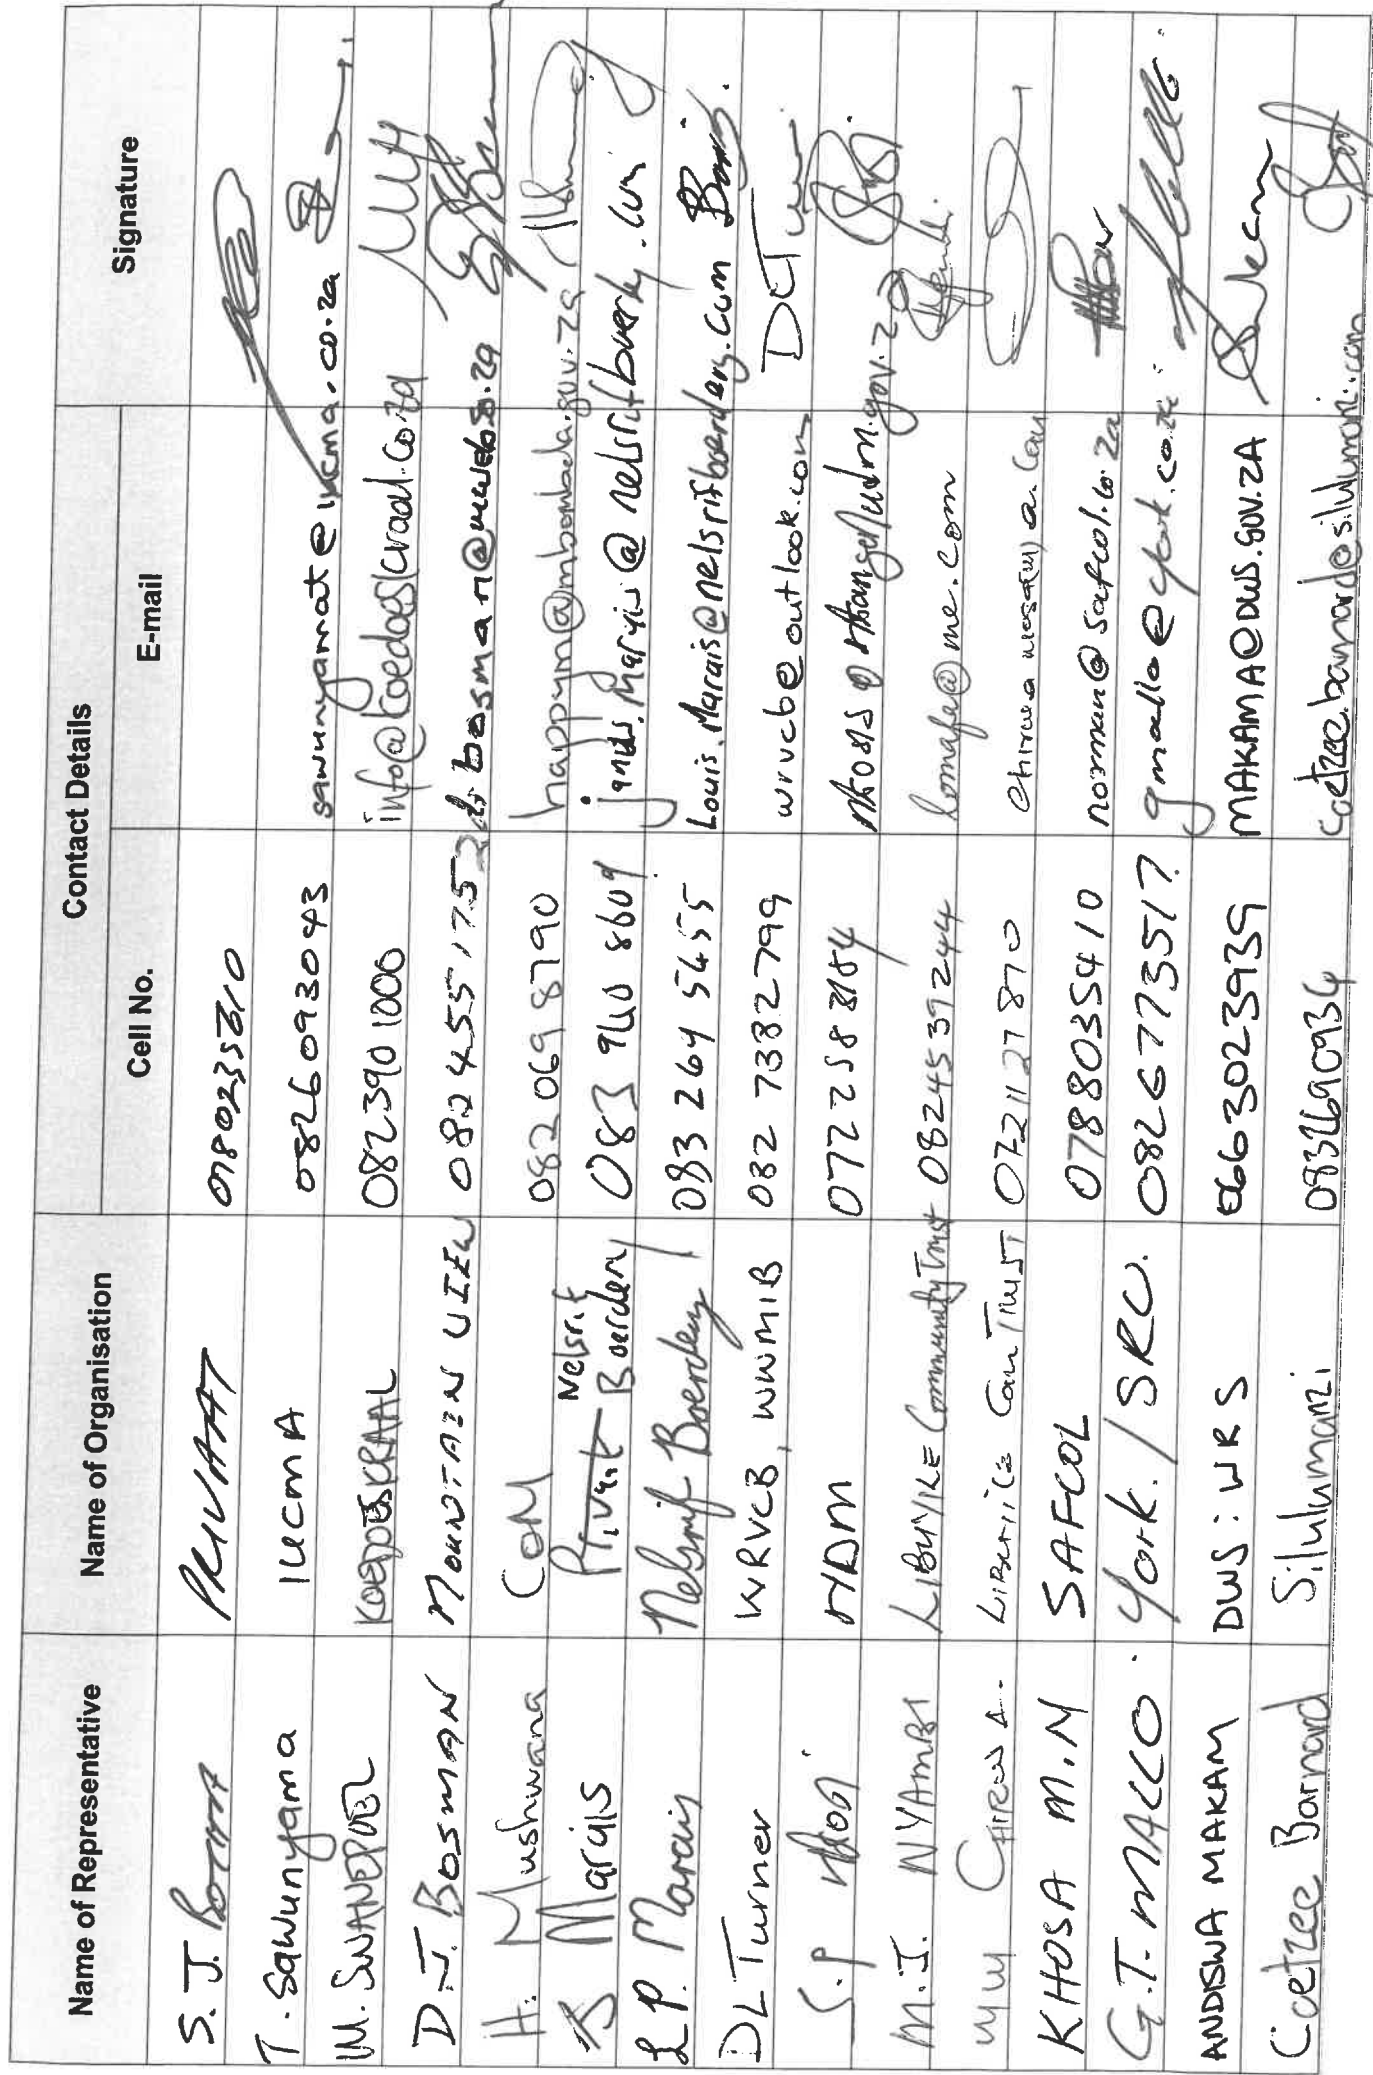 Name of Representative Name of Organisation Contact Details Signature
Cell No. E-mail
S. J. Botha PRIVAAT 0780235610
T. Sawunyama IUCMA 0826093043 sawunyamat@iucma.co.za
M. SWANEPOEL KOEDOESKRAAL 0823901000 info@koedoeskraal.co.za
D.J. BOSMAN MOUNTAIN VIEW 0824551752 bosman@mweb.co.za
H. Mushwana CoM 082 069 8790 happym@mbombela.gov.za
Marais Private Nelsrif Boerdery 083 940 8609 Marais@nelsrifboerdery.com
L.P. Marais Nelsrif Boerdery 083 264 5655 Louis.Marais@nelsrifboerdery.com
DL Turner WRVCB, WWMIB 082 738 2799 wrvcb@outlook.com DLTurner
S.P Nkosi 072 258 8184
M.J. NYAMBI LIBUYILE Community Trust 0824539244 lomafa@me.com
Trust 0721127870
KHOSA M.N SAFCOL 0788035410 norman@safcol.co.za
G.T. MALLO York / SRU. 0826773517 gmallo@york.co.za
ANDISWA MAKAM DWS: WRS 0663023939 MAKAMA@DWS.GOV.ZA
Coetzee Barnard Silulumanzi 0832690934 coetzee.barnard@silulumanzi.com